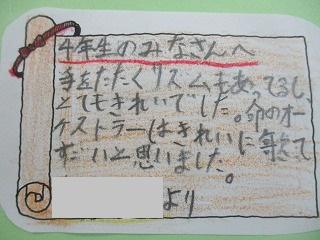 4年生のみなさんへ
手をたたくリズムもあってるし、
とてもきれいでした。命のオー
ケストラーはきれいに
すごいと思いました。
より